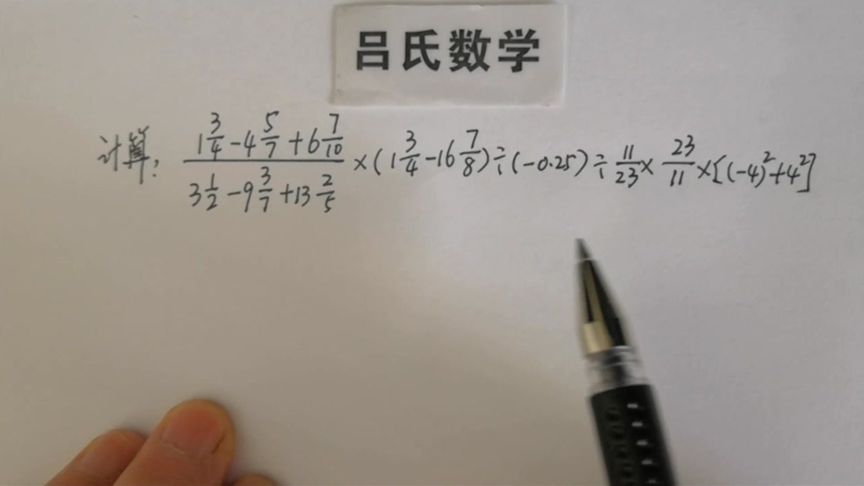 吕氏数学
计算: (1 3/4 - 4 5/7 + 6 7/10)/(3 1/2 - 9 3/7 + 13 2/5) × (1 3/4 - 16 7/8) ÷ (-0.25) ÷ 11/23 × 23/11 × [(-4)² + 4²]